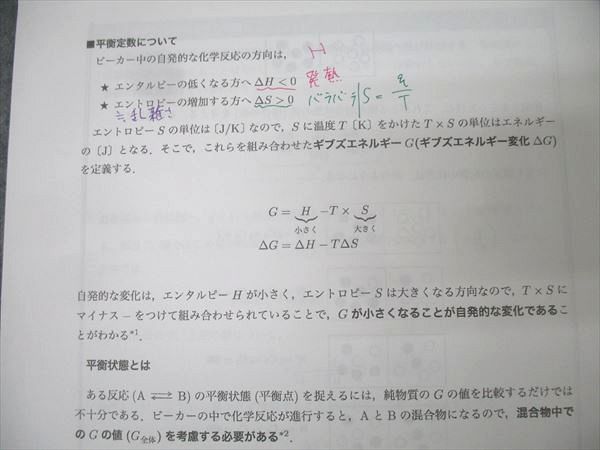 ■平衡定数について
ビーカー中の自発的な化学反応の方向は，
H
★ エンタルピーの低くなる方へ ΔH < 0 発熱
★ エントロピーの増加する方へ ΔS > 0 バラバラ S = q/T
≒乱雑さ
エントロピー S の単位は〔J/K〕なので，S に温度 T〔K〕をかけた T × S の単位はエネルギー
の〔J〕となる．そこで，これらを組み合わせたギブズエネルギー G(ギブズエネルギー変化 ΔG)
を定義する．
G = H − T × S
小さく 大きく
ΔG = ΔH − TΔS
自発的な変化は，エンタルピー H が小さく，エントロピー S は大きくなる方向なので，T × S に
マイナス − をつけて組み合わせられていることで，G が小さくなることが自発的な変化であるこ
とがわかる*1．
平衡状態とは
ある反応 (A ⇄ B) の平衡状態 (平衡点) を捉えるには，純物質の G の値を比較するだけでは
不十分である．ビーカーの中で化学反応が進行すると，A と B の混合物になるので，混合物中で
の G の値 (G全体) を考慮する必要がある*2．